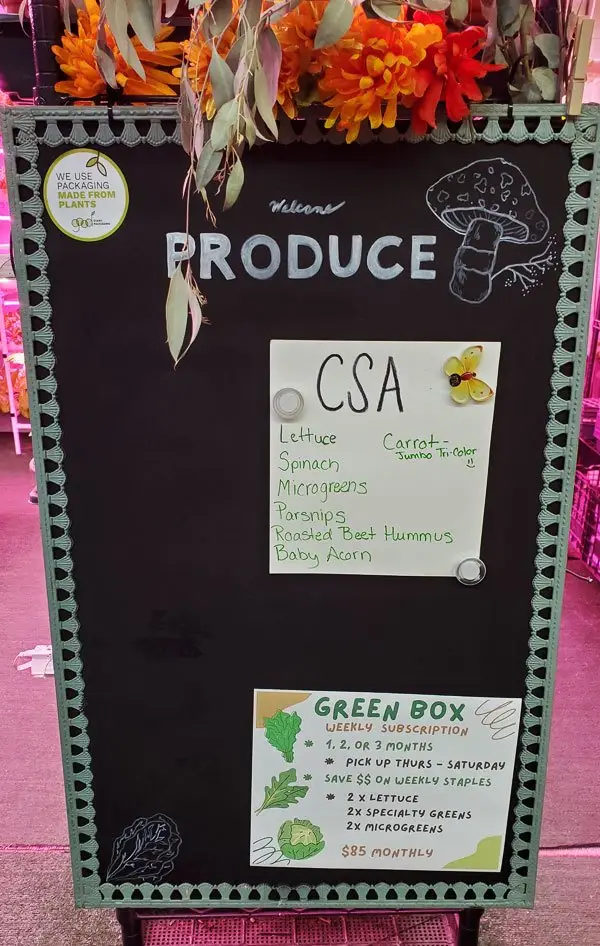 WE USE
PACKAGING
MADE FROM
PLANTS
Welcome
PRODUCE
CSA
Lettuce
Spinach
Microgreens
Parsnips
Roasted Beet Hummus
Baby Acorn
Carrot-
Jumbo Tri-Color
GREEN BOX
WEEKLY SUBSCRIPTION
1, 2, OR 3 MONTHS
PICK UP THURS - SATURDAY
SAVE $$ ON WEEKLY STAPLES
2 X LETTUCE
2X SPECIALTY GREENS
2X MICROGREENS
$85 MONTHLY